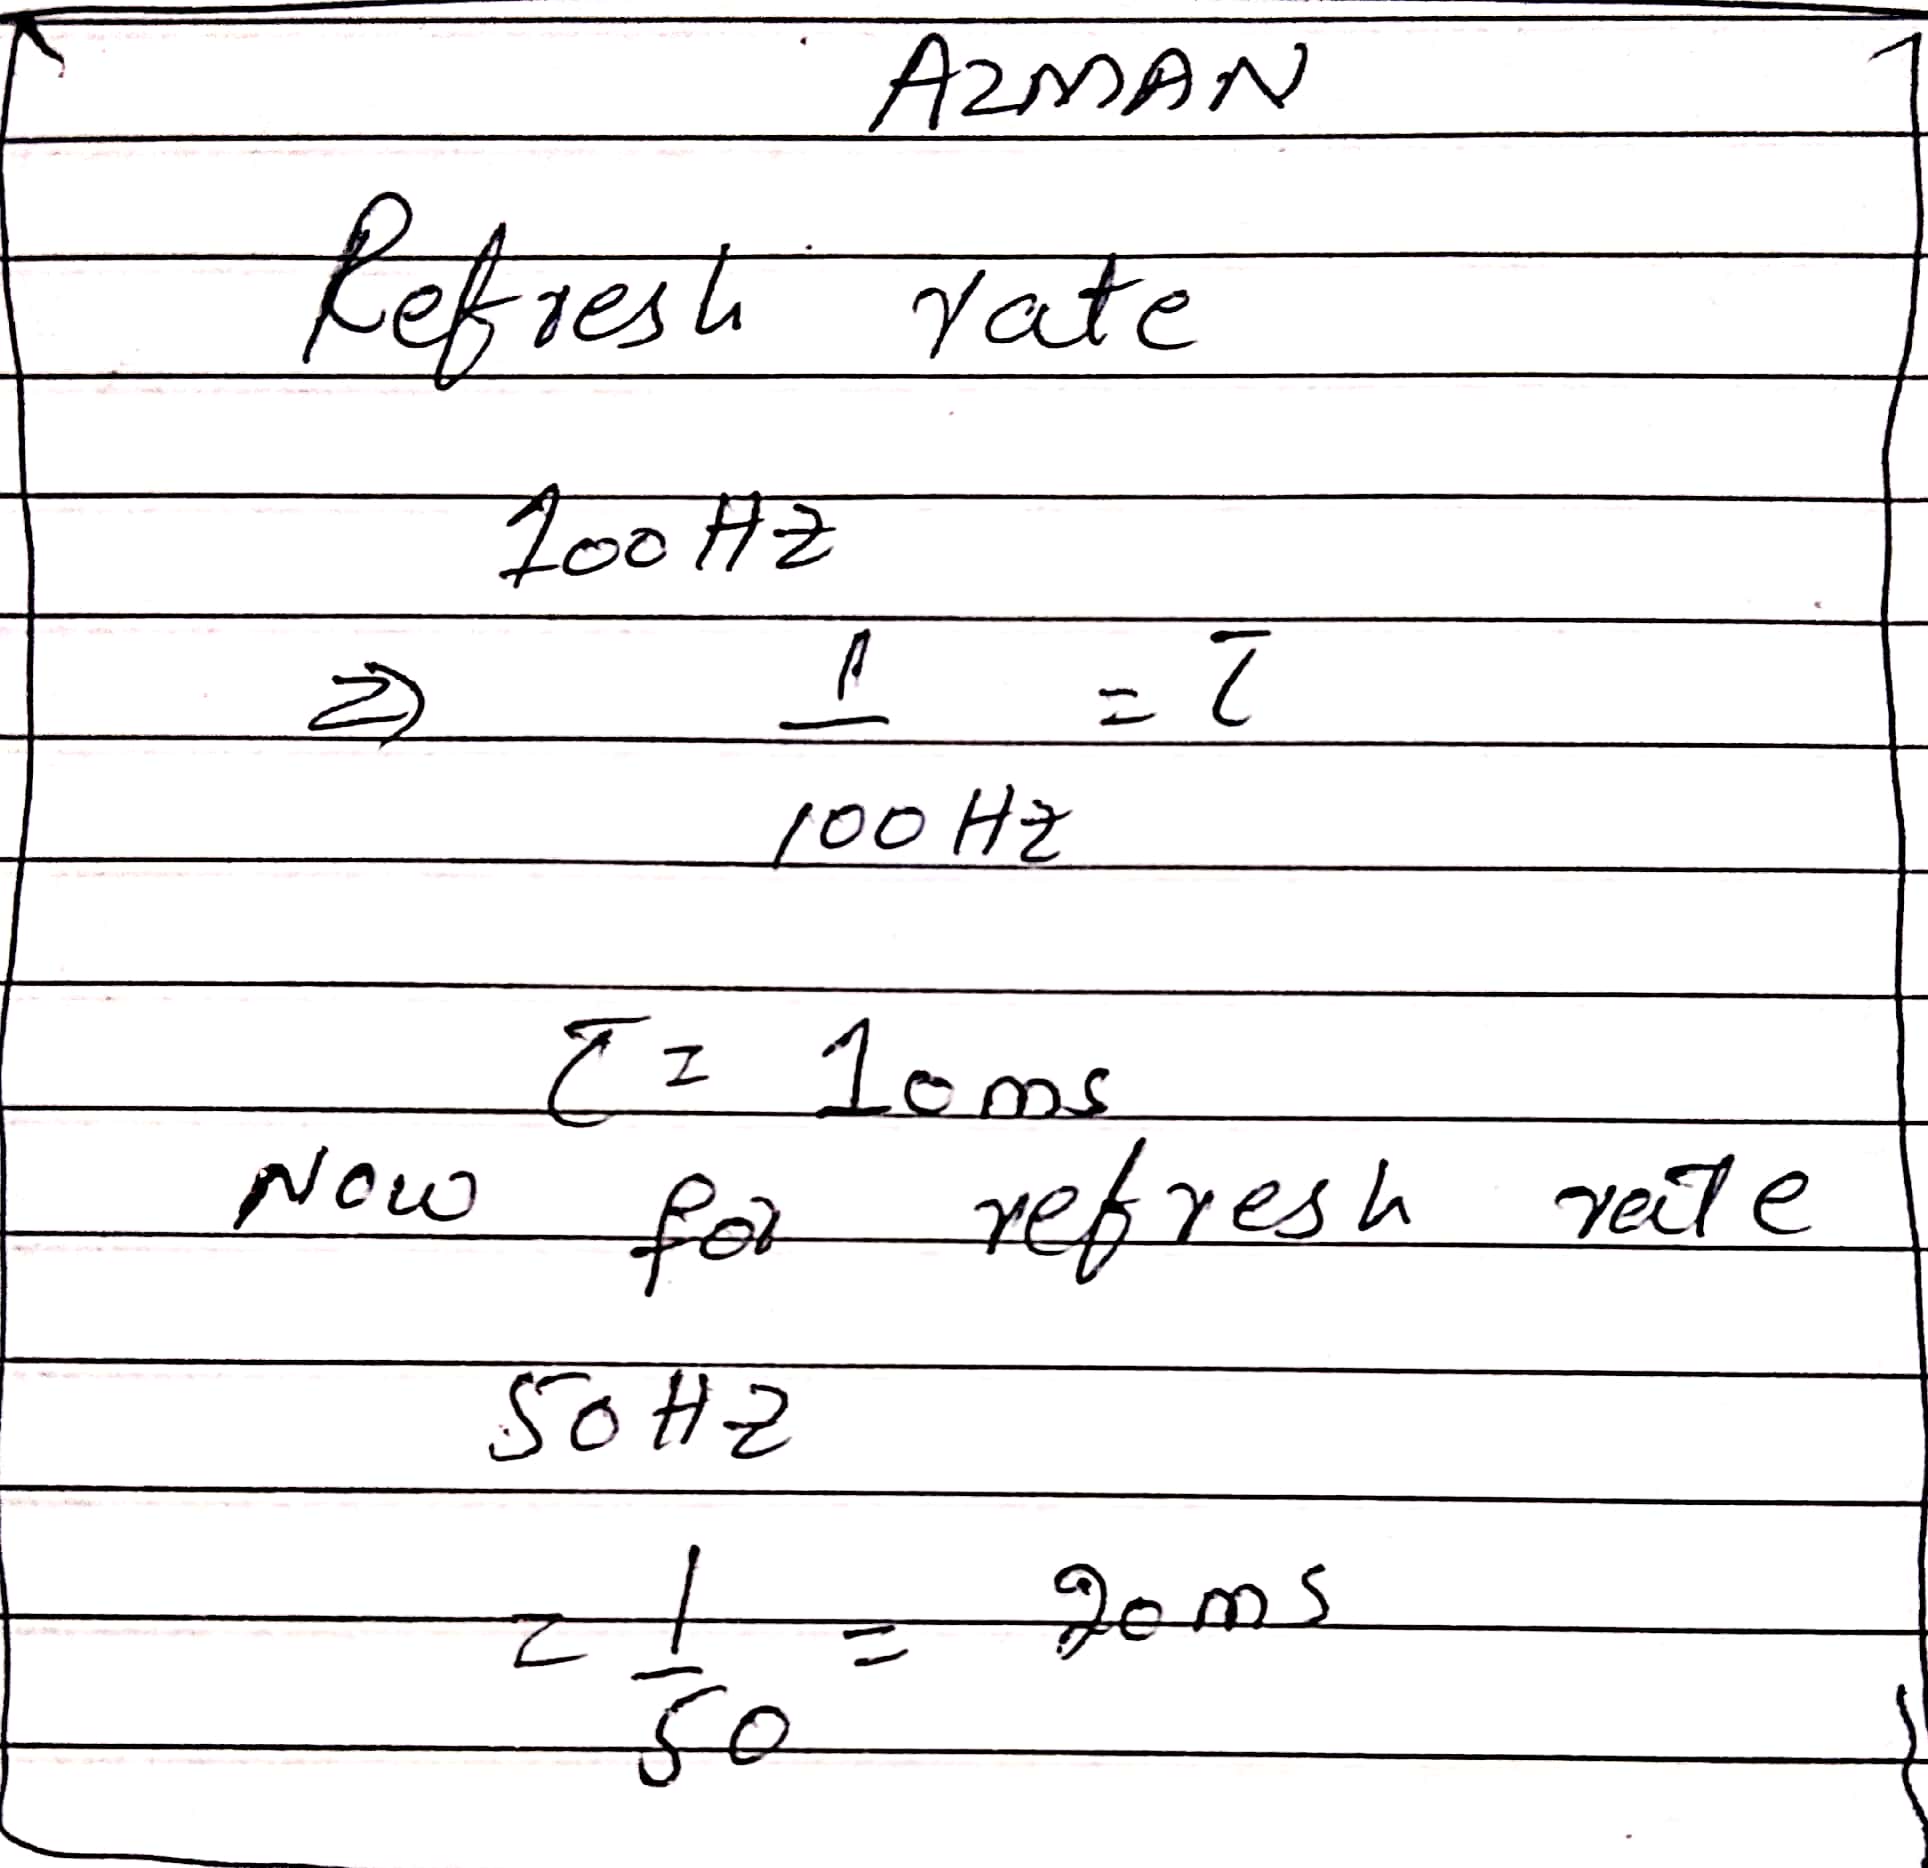 AZMAN
Refresh rate
100 Hz
⇒ 1 = τ
100 Hz
τ = 10 ms
Now for refresh rate
50 Hz
= 1 = 20 ms
50